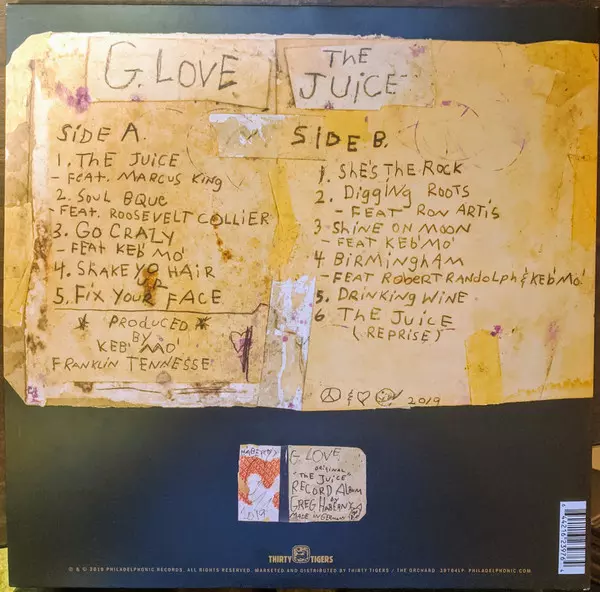 G. LOVE
THE
JUICE
SIDE A.
1. THE JUICE
- FEAT. MARCUS KING
2. SOUL BQUE
- FEAT. ROOSEVELT COLLIER
3. GO CRAZY
- FEAT KEB' MO'
4. SHAKE YO HAIR
UP
5. FIX YOUR FACE
* PRODUCED *
BY
KEB' MO'
FRANKLIN TENNESSE
SIDE B.
1. SHE'S THE ROCK
2. DIGGING ROOTS
- FEAT RON ARTIS
3 SHINE ON MOON
- FEAT KEB' MO'
4 BIRMINGHAM
- FEAT ROBERT RANDOLPH & KEB' MO'
5. DRINKING WINE
6 THE JUICE
(REPRISE)
☮ & ♡ 2019
G. LOVE
ORIGINAL
"THE JUICE"
RECORD ALBUM
BY
GREG HABERNY
MADE IN
THIRTY TIGERS
℗ & © 2019 PHILADELPHONIC RECORDS. ALL RIGHTS RESERVED. MARKETED AND DISTRIBUTED BY THIRTY TIGERS / THE ORCHARD. PHILADELPHONIC.COM